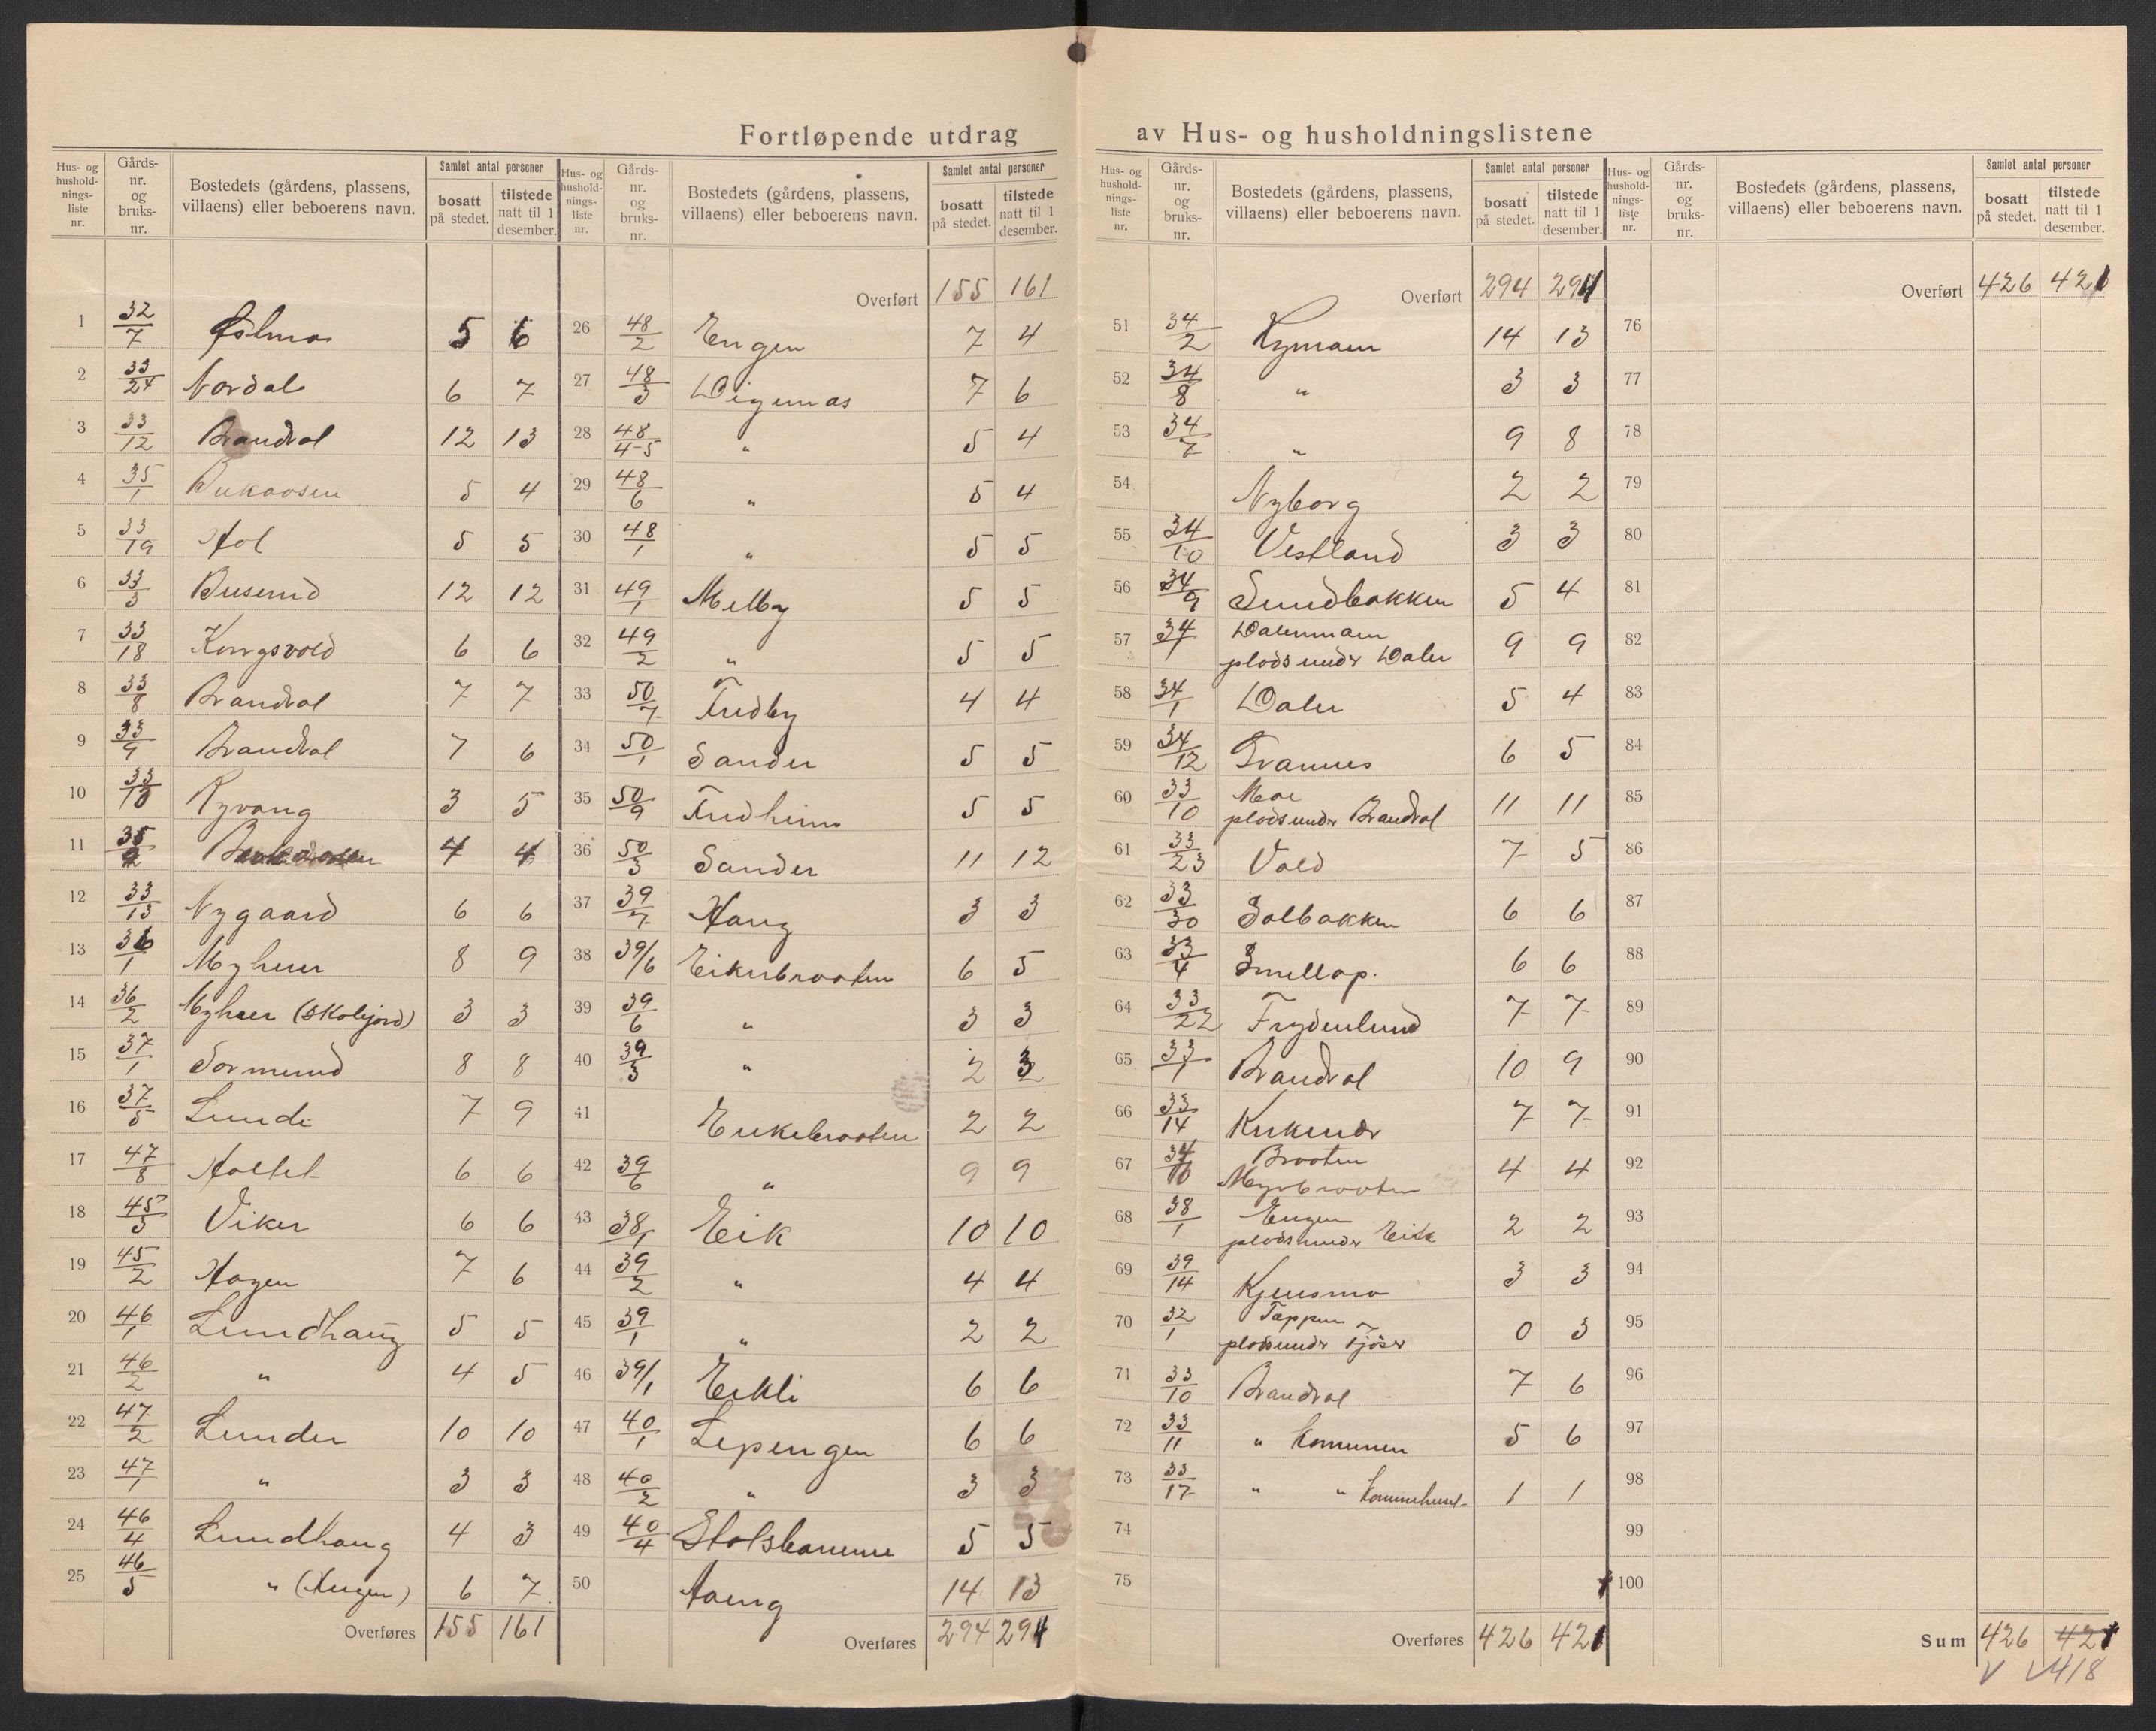 Fortløpende utdrag av Hus- og husholdningslistene
Hus- og husholdnings-liste nr. Gårds-nr. og bruks-nr. Bostedets (gårdens, plassens, villaens) eller beboerens navn. Samlet antal personer bosatt på stedet. tilstede natt til 1 desember.
1 32/7 Østmo 5 6
2 33/24 Nordal 6 7
3 33/12 Brandval 12 13
4 35/1 5 4
5 33/19 Hol 5 5
6 33/3 Buserud 12 12
7 33/18 Kongsvold 6 6
8 33/8 Brandval 7 7
9 33/9 Brandval 7 6
10 33/10 Ryvang 3 5
11 35/2 4 4
12 33/13 Nygaard 6 6
13 36/1 Myhrer 8 9
14 36/2 Myhrer (Skolejord) 3 3
15 37/1 Sormund 8 8
16 37/5 Lunde 7 9
17 47/8 Holtet 6 6
18 45/3 Viker 6 6
19 45/2 Hagen 7 6
20 46/1 Lundhaug 5 5
21 46/2 " 4 5
22 47/2 Lunder 10 10
23 47/1 " 3 3
24 46/4 Lundhaug 4 3
25 46/5 " (Haugen) 6 7
Overføres 155 161
Hus- og husholdnings-liste nr. Gårds-nr. og bruks-nr. Bostedets (gårdens, plassens, villaens) eller beboerens navn. Samlet antal personer bosatt på stedet. tilstede natt til 1 desember.
Overført 155 161
26 48/2 Engen 7 4
27 48/3 Digernæs 7 6
28 48/4-5 " 5 4
29 48/6 " 5 4
30 48/1 " 5 5
31 49/1 Melby 5 5
32 49/2 " 5 5
33 50/7 Tudby 4 4
34 50/1 Sander 5 5
35 50/9 Fredheim 5 5
36 50/3 Sander 11 12
37 39/7 Haug 3 3
38 39/6 Eikerbraaten 6 5
39 39/6 " 3 3
40 39/3 " 2 3
41 Eikebraaten 2 2
42 39/6 " 9 9
43 38/1 Eik 10 10
44 39/2 " 4 4
45 39/1 " 2 2
46 39/1 Eikli 6 6
47 40/1 Lepengen 6 6
48 40/2 " 3 3
49 40/4 Stolsbamme 5 5
50 Haug 14 13
Overføres 294 291
Hus- og husholdnings-liste nr. Gårds-nr. og bruks-nr. Bostedets (gårdens, plassens, villaens) eller beboerens navn. Samlet antal personer bosatt på stedet. tilstede natt til 1 desember.
Overført 294 291
51 34/2 Rymoen 14 13
52 34/8 " 3 3
53 34/7 " 9 8
54 Nyborg 2 2
55 34/10 Vestland 3 3
56 34/9 Sundbakken 5 4
57 34/1 Dalermoen
plads under Daler 9 9
58 34/1 Daler 5 4
59 34/12 Grannes 6 5
60 33/10 Moe
plads under Brandval 11 11
61 33/23 Vold 7 5
62 33/30 Solbakken 6 6
63 33/4 Smellop. 6 6
64 33/22 Frydenlund 7 7
65 33/1 Brandval 10 9
66 33/14 7 7
67 34/10 Braaten
Myrbraaten 4 4
68 38/1 Engen
plads under Eik 2 2
69 39/14 Kjensmo 3 3
70 32/1 Tappen
plads under Tjöser 0 3
71 33/10 Brandval 7 6
72 33/11 " Komunen 5 6
73 33/17 " " 1 1
74
75
Overføres 426 421
Hus- og husholdnings-liste nr. Gårds-nr. og bruks-nr. Bostedets (gårdens, plassens, villaens) eller beboerens navn. Samlet antal personer bosatt på stedet. tilstede natt til 1 desember.
Overført 426 421
76
77
78
79
80
81
82
83
84
85
86
87
88
89
90
91
92
93
94
95
96
97
98
99
100
Sum 426 421
418